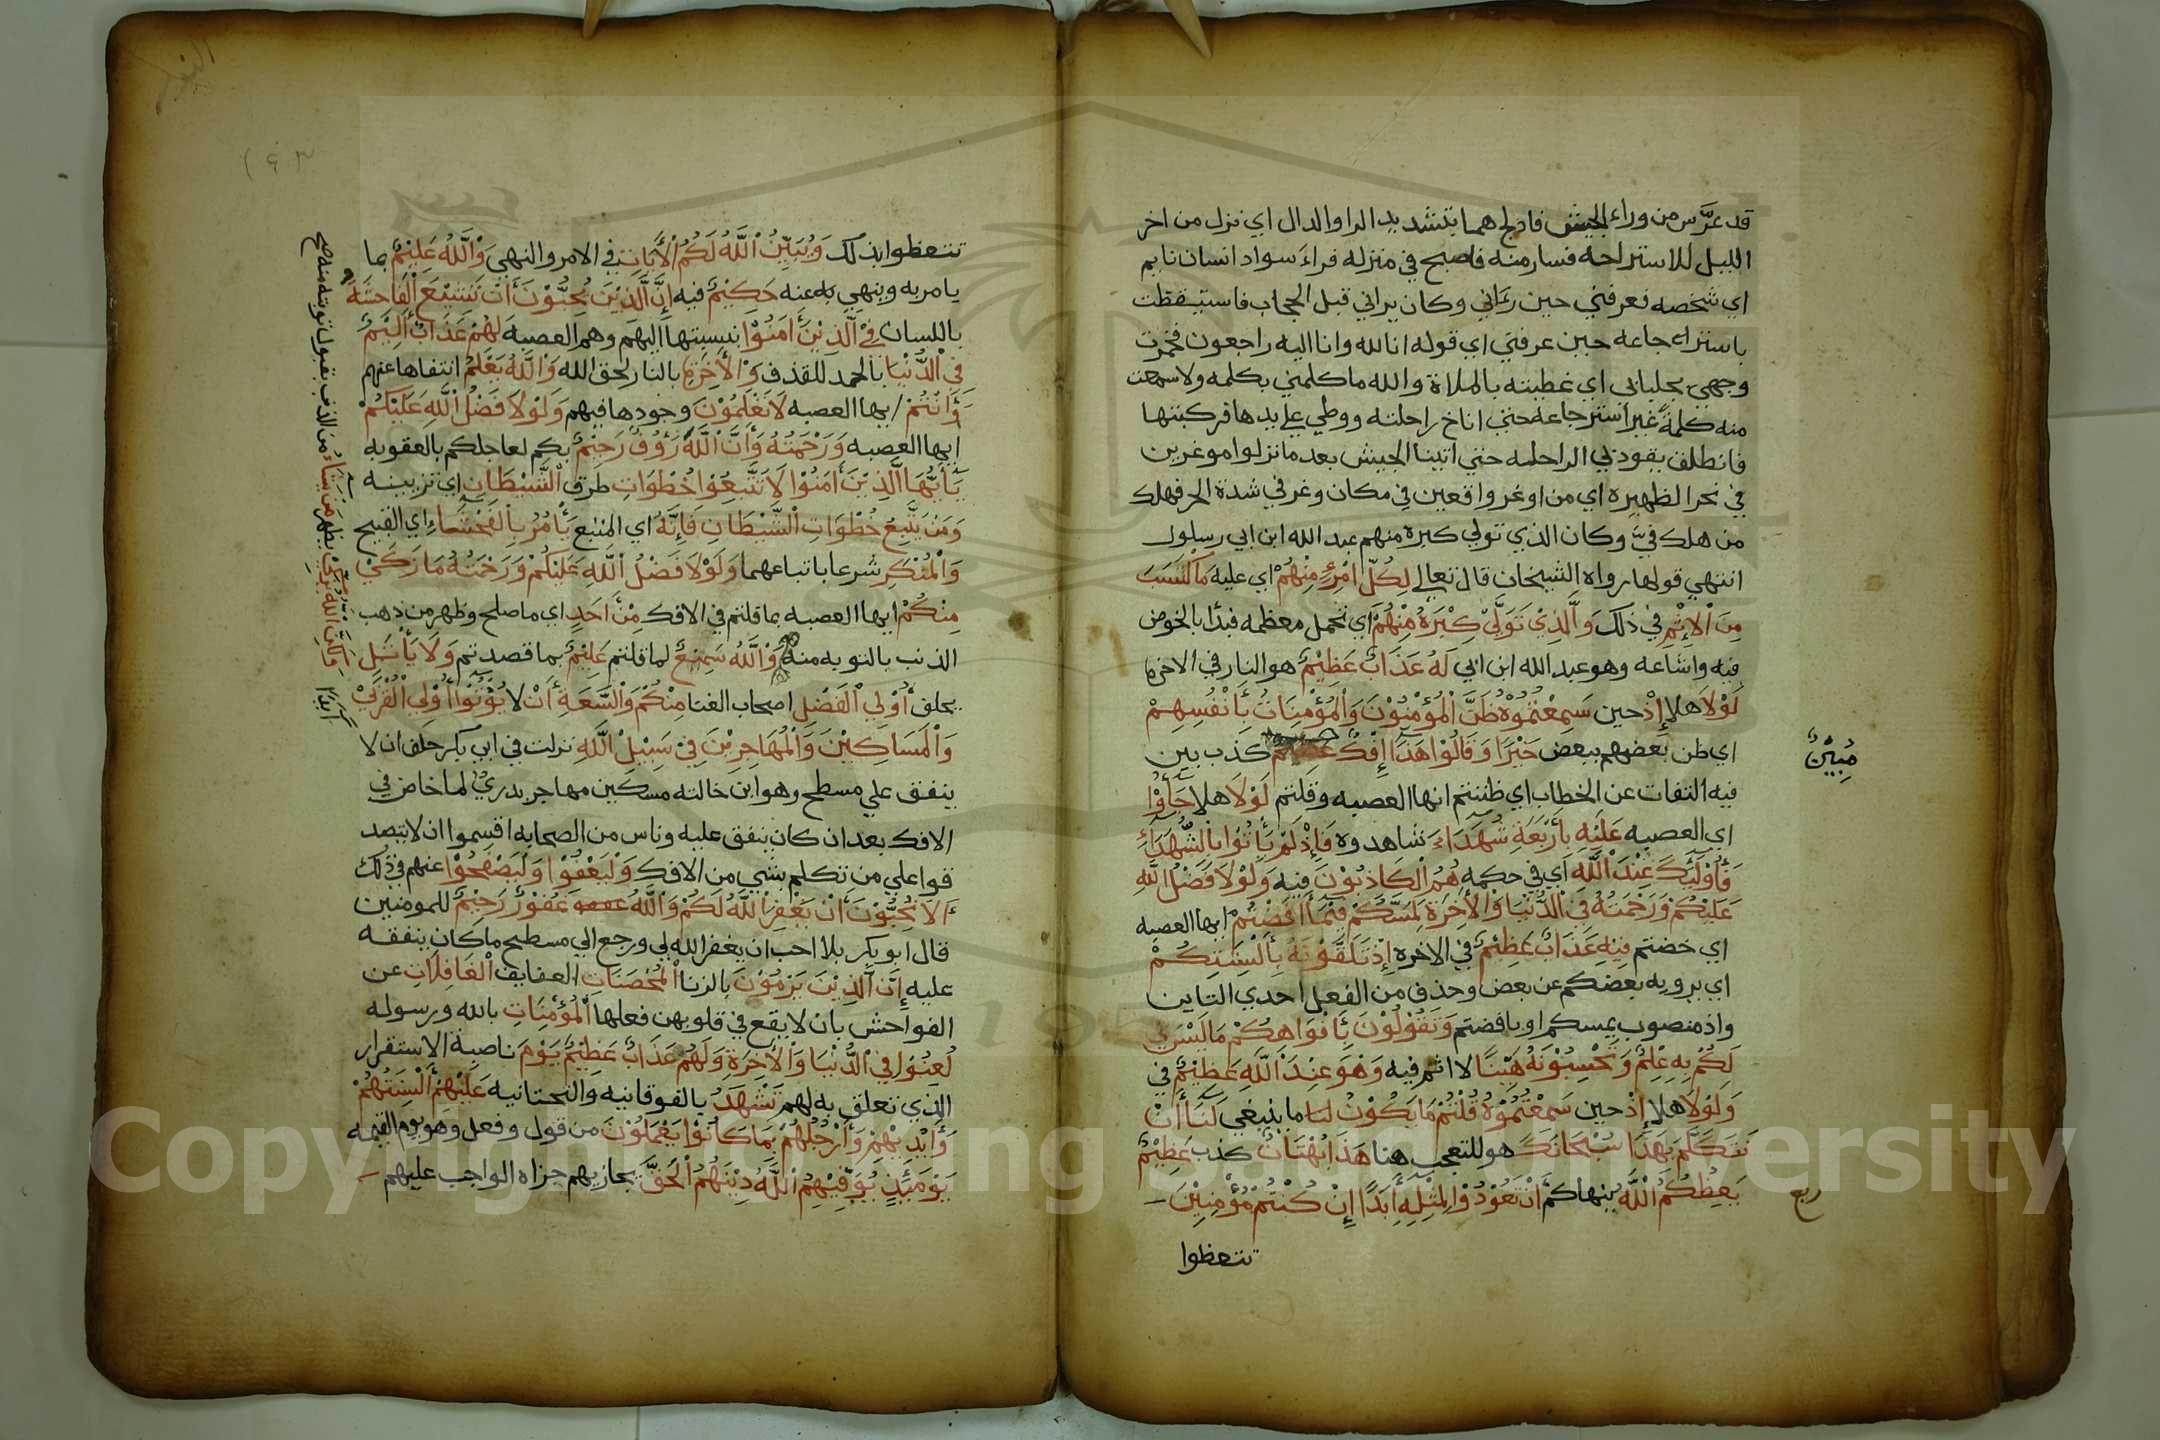 قد عرَّس من وراء الجيش فادلج هما بتشديد الرا والدال اي نزل من اخر
الليل للاستراحه فسار منه فاصبح في منزله فراءَ سواد انسان نايم
اي شخصه فعرفني حين رءاني وكان يراني قبل الحجاب فاستيقظت
باسترجاعه حين عرفني اي قوله انا لله وانا اليه راجعون فخمرت
وجهي بجلبابي اي غطيته بالملاة والله ما كلمني بكلمه ولا سمعت
منه كلمةً غير استرجاعه حتي اناخ راحلته ووطي علي يدها فركبتها
فانطلق يقود بي الراحله حتي اتينا الجيش بعد ما نزلوا موغرين
في نحر الظهيرة اي من اوغر واقعين في مكان وغر في شدة الحر فهلك
من هلك فيَّ وكان الذي تولي كبره منهم عبد الله ابن ابي رسلول
انتهي قولها رواه الشيخان قال تعالي لِكُلِّ امْرِءٍ مِنْهُمْ اي عليه مَا اكْتَسَبَ
مِنَ الْاِثْمِ في ذلك وَالَّذِيْ تَوَلَّيْ كِبْرَهُ مِنْهُمْ اي تحمل معظمه فبدا بالخوض
فيه واشاعه وهو عبد الله ابن ابي لَهُ عَذَابٌ عَظِيْمٌ هو النار في الاخرة
لَوْلَا هلا إِذْ حين سَمِعْتُمُوْهُ ظَنَّ الْمُؤْمِنُوْنَ وَالْمُؤْمِنَاتُ بِأَنْفُسِهِمْ
اي ظن بعضهم ببعض خَيْرًا وَقَالُوْا هَذَا إِفْكٌ كذب بين
مُبِيْنٌ
فيه التفات عن الخطاب اي ظننتم ايها العصبه وقلتم لَوْلَا هلا جَاؤُا
اي العصبه عَلَيْهِ بِأَرْبَعَةِ شُهَدَاءَ شاهدوه فَإِذْ لَمْ يَأْتُوْا بِالشُّهَدَاءِ
فَأُوْلَئِكَ عِنْدَ اللَّهِ اي في حكمه هُمُ الْكَاذِبُوْنَ فيه وَلَوْلَا فَضْلُ اللَّهِ
عَلَيْكُمْ وَرَحْمَتُهُ فِي الدُّنْيَا وَالْأَخِرَةِ لَمَسَّكُمْ فِيْمَا أَفَضْتُمْ ايها العصبه
اي خضتم فِيْهِ عَذَابٌ عَظِيْمٌ في الاخرة إِذْ تَلَقَّوْنَهُ بِأَلْسِنَتِكُمْ
اي يرويه بعضكم عن بعض وحذف من الفعل احدي التاين
واذ منصوب بمسكم او بافضتم وَتَقُوْلُوْنَ بِأَفْوَاهِكُمْ مَا لَيْسَ
لَكُمْ بِهِ عِلْمٌ وَتَحْسِبُوْنَهُ هَيِّنًا لا اثم فيه وَهُوَ عِنْدَ اللَّهِ عَظِيْمٌ في
وَلَوْلَا هلا إِذْ حين سَمِعْتُمُوْهُ قُلْتُمْ مَا يَكُوْنُ لنا ما ينبغي لَنَا أَنْ
نَتَكَلَّمَ بِهَذَا سُبْحَانَكَ هو للتعجب هنا هَذَا بُهْتَانٌ كذب عَظِيْمٌ
يَعِظُكُمُ اللَّهُ ينهاكم أَنْ تَعُوْدُوْا لِمِثْلِهِ أَبَدًا إِنْ كُنْتُمْ مُؤْمِنِيْنَ
ربع
تتعظوا
النور
تتعظوا بذلك وَيُبَيِّنُ اللَّهُ لَكُمُ الْأَيَاتِ في الامر والنهي وَاللَّهُ عَلِيْمٌ بما
يامر به وينهي عنه حَكِيْمٌ فيه إِنَّ الَّذِيْنَ يُحِبُّوْنَ أَنْ تَشِيْعَ الْفَاحِشَةُ
باللسان فِيْ الَّذِيْنَ أَمَنُوْا بنسبتها اليهم وهم العصبه لَهُمْ عَذَابٌ أَلِيْمٌ
فِي الدُّنْيَا بالحمد للقذف وَالْأَخِرَةِ بالنار لحق الله وَاللَّهُ يَعْلَمُ انتفاها عنهم
وَأَنْتُمْ ايها العصبه لَا تَعْلَمُوْنَ وجودها فيهم وَلَوْلَا فَضْلُ اللَّهِ عَلَيْكُمْ
ايها العصبه وَرَحْمَتُهُ وَأَنَّ اللَّهَ رَؤُفٌ رَحِيْمٌ بكم لعاجلكم بالعقوبه
يَأَيُّهَا الَّذِيْنَ أَمَنُوْا لَا تَتَّبِعُوْا خُطُوَاتِ طرق الشَّيْطَانِ اي تزيينه
وَمَنْ يَتَّبِعْ خُطُوَاتِ الشَّيْطَانِ فَإِنَّهُ اي المتبع يَأْمُرُ بِالْفَحْشَاءِ اي القبيح
وَالْمُنْكَرِ شرعا باتباعهما وَلَوْلَا فَضْلُ اللَّهِ عَلَيْكُمْ وَرَحْمَتُهُ مَا زَكَيْ
مِنْكُمْ ايها العصبه بما قلتم في الافك مِنْ أَحَدٍ اي ما صلح وظهر من ذهب
الذنب بالتوبه منه وَاللَّهُ سَمِيْعٌ لما قلتم عَلِيْمٌ بما قصدتم وَلَا يَأْتَلِ
يحلف أُوْلِي الْفَضْلِ اصحاب الغنا مِنْكُمْ وَالسَّعَةِ أَنْ لا يُؤْتُوْا أُوْلِي الْقُرْبَيْ
وَالْمَسَاكِيْنَ وَالْمُهَاجِرِيْنَ فِيْ سَبِيْلِ اللَّهِ نزلت في ابي بكر حلف ان لا
ينفق علي مسطح وهو ابن خالته مسكين مهاجر بدريٌ لما خاض في
الافك بعد ان كان ينفق عليه وناس من الصحابه اقسموا ان لا يتصد
قوا علي من تكلم بشي من الافك وَلْيَعْفُوْا وَلْيَصْفَحُوْا عنهم في ذلك
أَلَا تُحِبُّوْنَ أَنْ يَغْفِرَ اللَّهُ لَكُمْ وَاللَّهُ غَفُوْرٌ رَحِيْمٌ للمومنين
قال ابو بكر بلا احب ان يغفر الله لي ورجع الي مسطح ما كان ينفقه
عليه إِنَّ الَّذِيْنَ يَرْمُوْنَ بالزنا الْمُحْصَنَاتِ العفايف الْغَافِلَاتِ عن
الفواحش بان لا يقع في قلوبهن فعلها الْمُؤْمِنَاتِ بالله ورسوله
لُعِنُوْا فِي الدُّنْيَا وَالْأَخِرَةِ وَلَهُمْ عَذَابٌ عَظِيْمٌ يَوْمَ ناصبة الاستقرار
الذي تعلق به لهم تَشْهَدُ بالفوقانيه والتحتانيه عَلَيْهِمْ أَلْسِنَتُهُمْ
وَأَيْدِيْهِمْ وَأَرْجُلُهُمْ بِمَا كَانُوْا يَعْمَلُوْنَ من قول وفعل وهو يوم القيمه
يَوْمَئِذٍ يُوَفِّيْهِمُ اللَّهُ دِيْنَهُمُ الْحَقَّ يجازيهم جزاه الواجب عليهم
أَبَدًا وَلَكِنَّ اللَّهَ يُزَكِّيْ يطهر مَنْ يَشَاءُ من الذنب بقبول توبته منه صح
Copyright © King Saud University